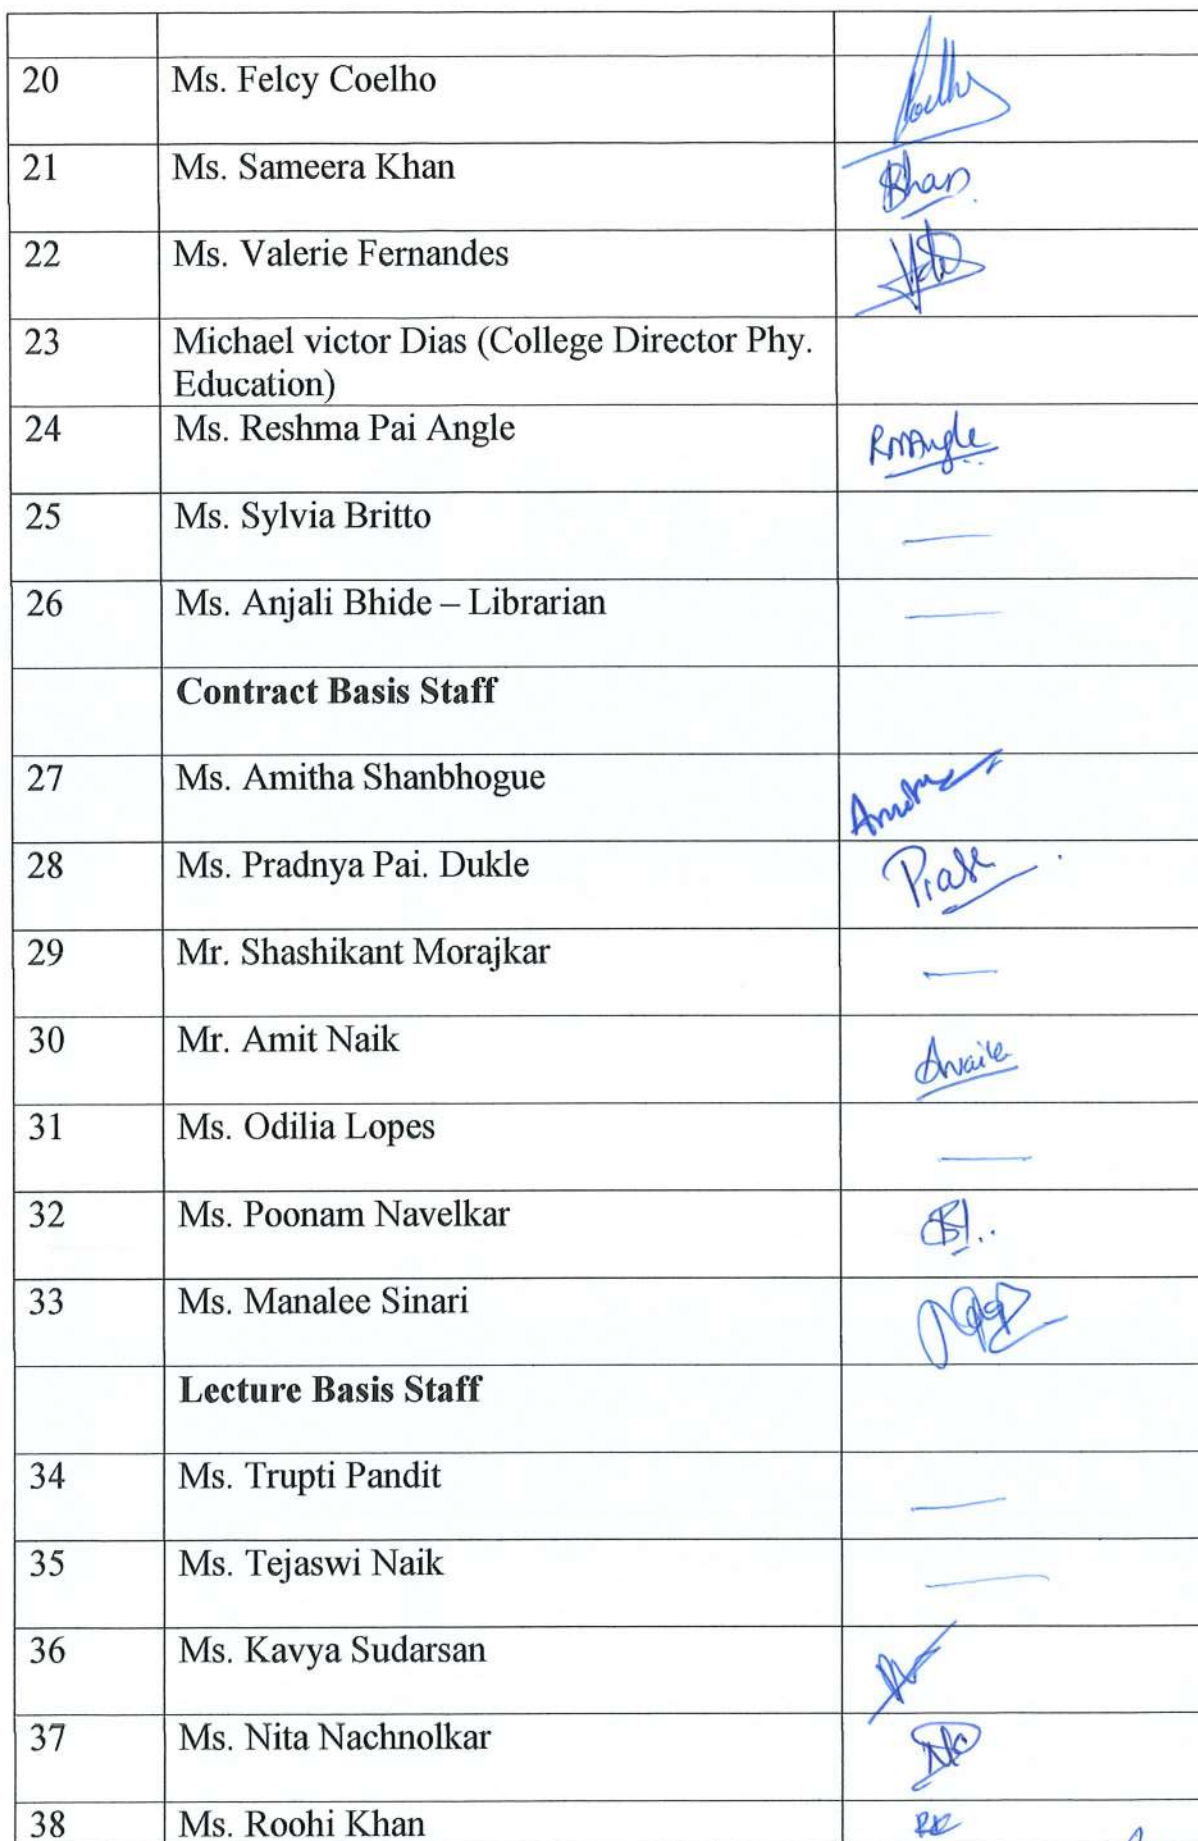 20 Ms. Felcy Coelho
21 Ms. Sameera Khan Khan
22 Ms. Valerie Fernandes
23 Michael victor Dias (College Director Phy.
Education)
24 Ms. Reshma Pai Angle RMAngle
25 Ms. Sylvia Britto —
26 Ms. Anjali Bhide – Librarian —
Contract Basis Staff
27 Ms. Amitha Shanbhogue
28 Ms. Pradnya Pai. Dukle
29 Mr. Shashikant Morajkar —
30 Mr. Amit Naik
31 Ms. Odilia Lopes —
32 Ms. Poonam Navelkar
33 Ms. Manalee Sinari
Lecture Basis Staff
34 Ms. Trupti Pandit —
35 Ms. Tejaswi Naik —
36 Ms. Kavya Sudarsan
37 Ms. Nita Nachnolkar
38 Ms. Roohi Khan RK